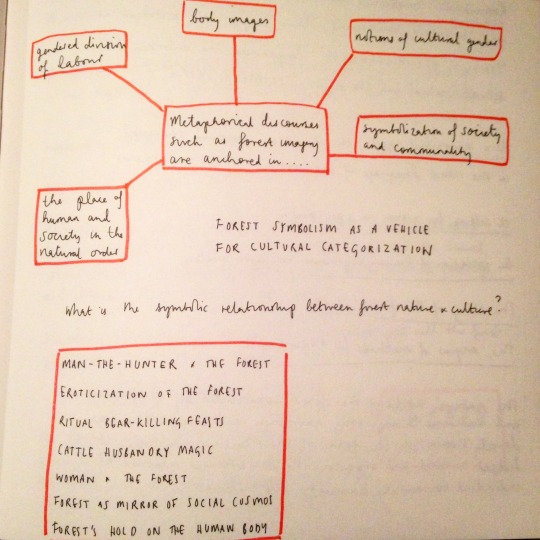 body images
gendered division
of labour
notions of cultural gender
Metaphorical discourses
such as forest imagery
are anchored in.....
symbolization of society
and communality
the place of
human and
society in the
natural order
FOREST SYMBOLISM AS A VEHICLE
FOR CULTURAL CATEGORIZATION
What is the symbolic relationship between forest nature & culture?
MAN-THE-HUNTER & THE FOREST
EROTICIZATION OF THE FOREST
RITUAL BEAR-KILLING FEASTS
CATTLE HUSBANDRY MAGIC
WOMAN & THE FOREST
FOREST AS MIRROR OF SOCIAL COSMOS
FOREST'S HOLD ON THE HUMAN BODY